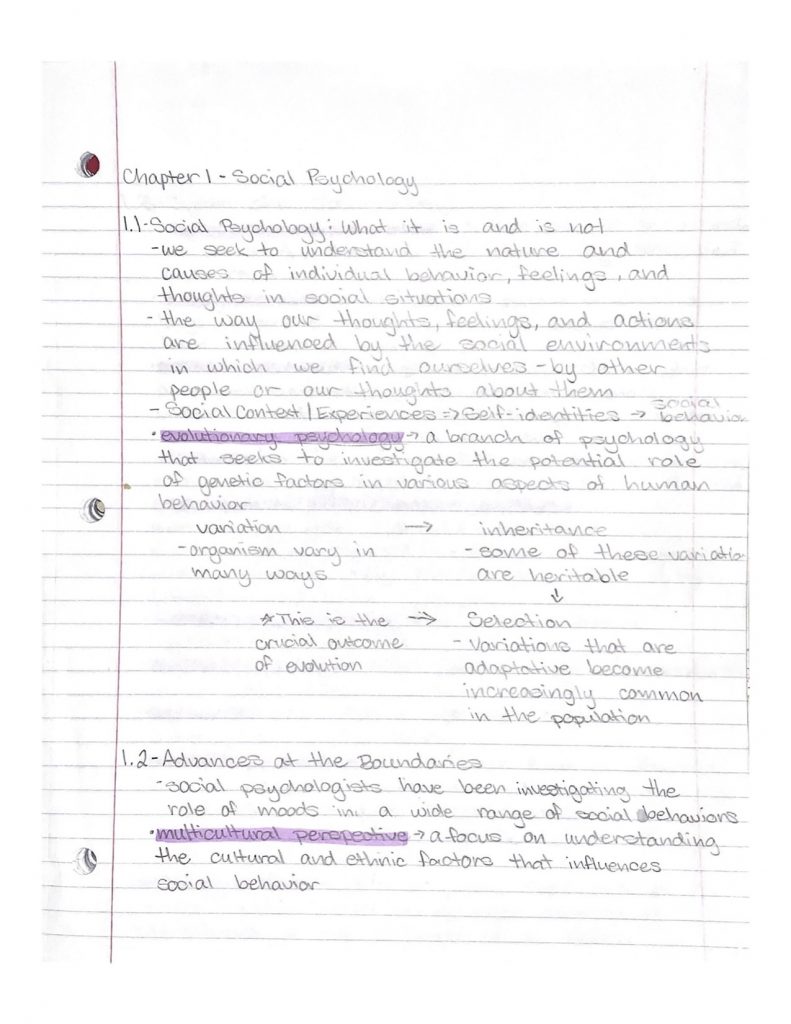 Chapter 1 - Social Psychology
1.1 - Social Psychology: What it is and is not
- we seek to understand the nature and
causes of individual behavior, feelings, and
thoughts in social situations
- the way our thoughts, feelings, and actions
are influenced by the social environments
in which we find ourselves - by other
people or our thoughts about them
- Social Context / Experiences => Self-identities → social behavior
• evolutionary psychology → a branch of psychology
that seeks to investigate the potential role
of genetic factors in various aspects of human
behavior
variation → inheritance
- organism vary in - some of these variatio
many ways are heritable
↓
☆ This is the → Selection
crucial outcome - variations that are
of evolution adaptative become
increasingly common
in the population
1.2 - Advances at the Boundaries
- social psychologists have been investigating the
role of moods in a wide range of social behaviors
• multicultural perspective → a focus on understanding
the cultural and ethnic factors that influences
social behavior